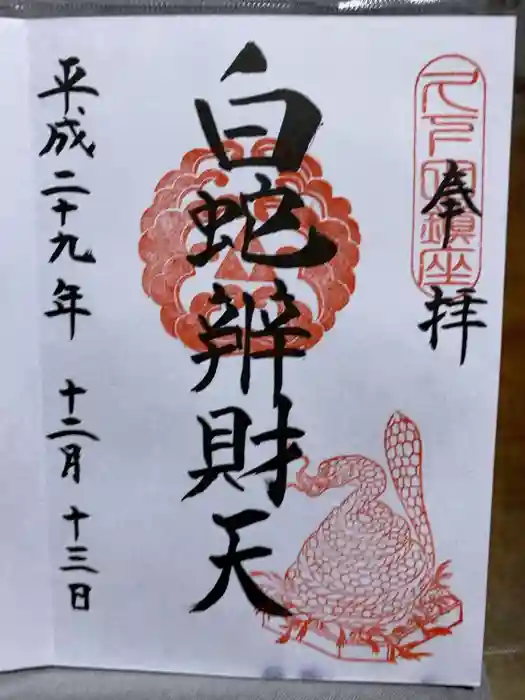 奉拝
鎮座
白蛇辨財天
平成二十九年 十二月 十三日